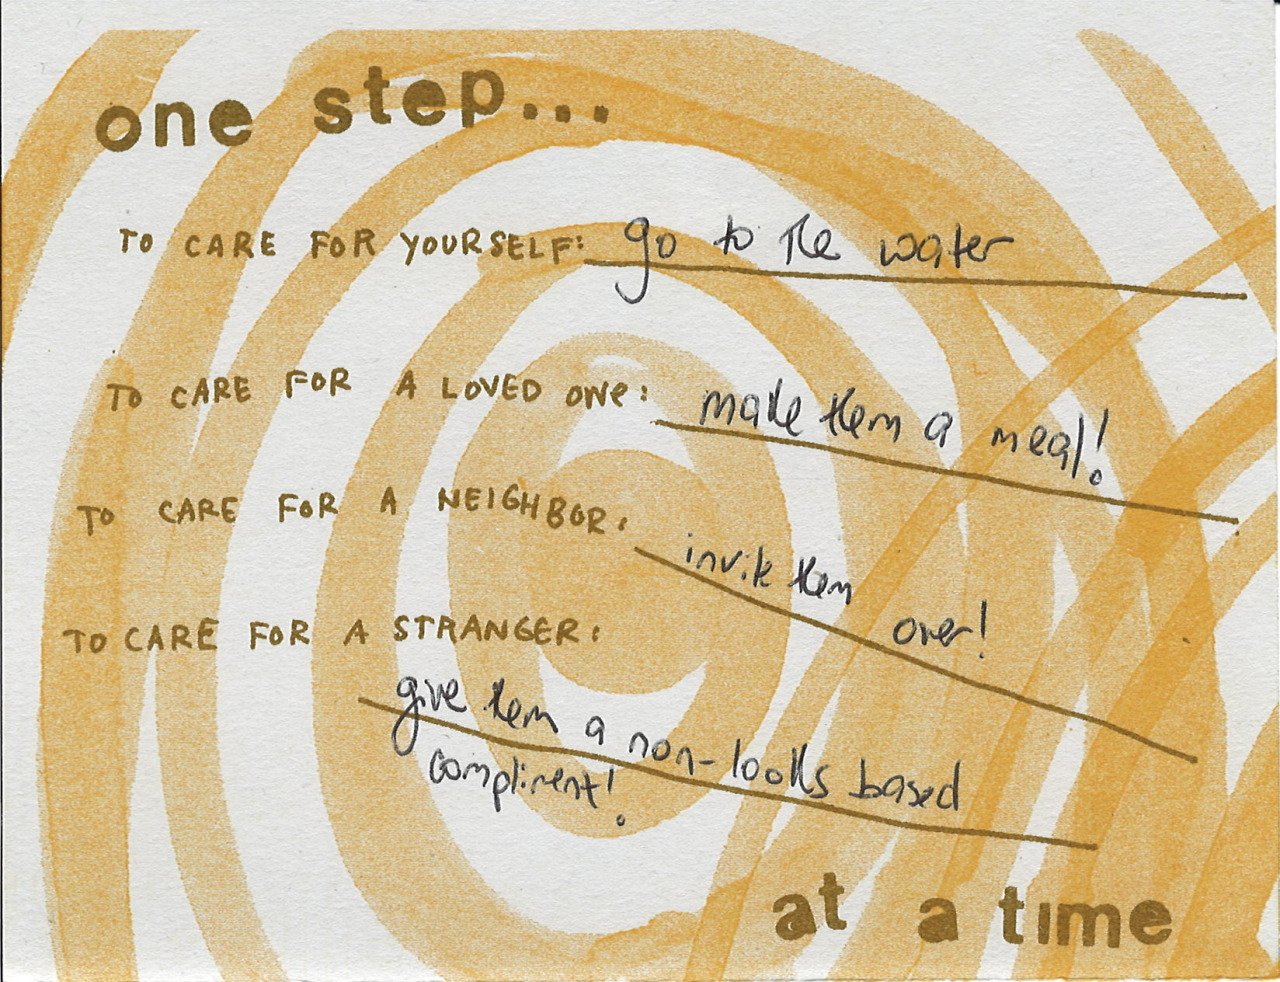 one step...
TO CARE FOR YOURSELF: go to the water
TO CARE FOR A LOVED ONE: make them a meal!
TO CARE FOR A NEIGHBOR: invite them over!
TO CARE FOR A STRANGER:
give them a non-looks based
compliment!
at a time